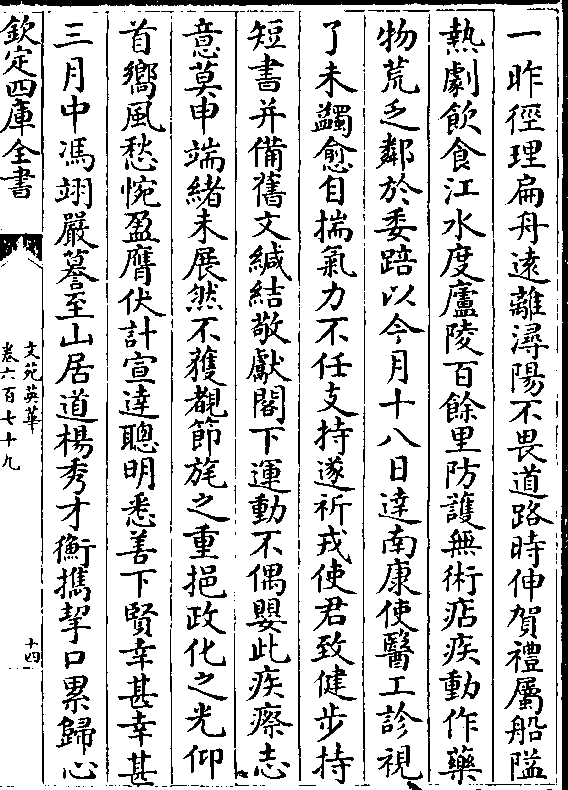 一昨徑理扁舟遠離潯陽不畏道路時伸賀禮屬船隘
熱劇飲食江水度廬陵百餘里防護無術痁疾動作藥
物荒乏鄰於委踣以今月十八日達南康使醫工診視
了未蠲愈自揣氣力不任支持遂祈戎使君致健步持
短書并備舊文緘結敬獻閣下運動不偶嬰此疾瘵志
意莫申端緒未展然不獲覩節旄之重挹政化之光仰
首嚮風愁惋盈膺伏計宣達聰明悉善下賢幸甚幸甚
三月中馮翊嚴謩至山居道楊秀才衡攜挈口累歸心
欽定四庫全書
文苑英華
卷六百七十九
十四